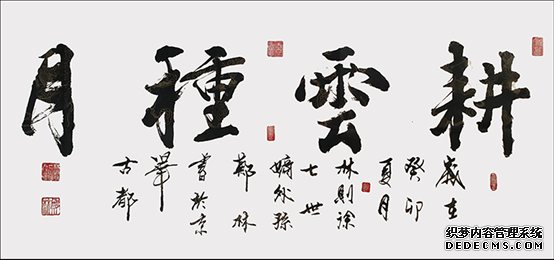 耕雲種月
歲在
癸卯
夏月
林則徐
七世
嫡外孫
鄭林
書於京
華
古都
织梦内容管理系统
DEDECMS.COM